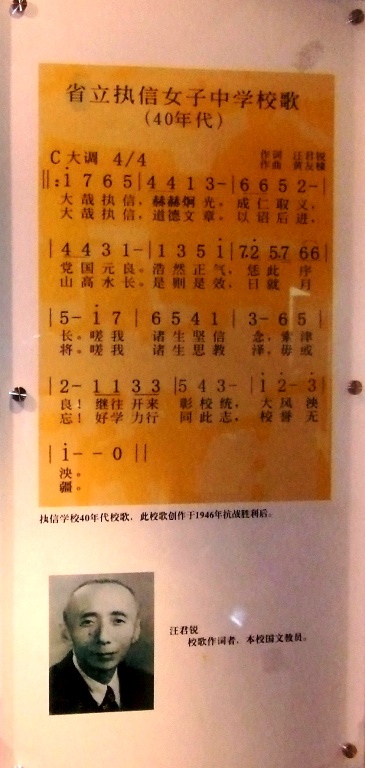 省立执信女子中学校歌
(40年代)
C大调 4/4
作词 汪君锐
作曲 黄友棣
‖: i 7 6 5 | 4 4 1 3 - | 6 6 5 2 - |
大哉执信,赫赫炯光。成仁取义,
大哉执信,道德文章。以语后进,
| 4 4 3 1 - | 1 3 5 i | 7.2 5.7 6 6 |
党国元良。浩然正气,恁此序
山高水长。是则是效,日就月
| 5 - i 7 | 6 5 4 1 | 3 - 6 5 |
长。嗟我诸生坚信念,索津
将。嗟我诸生思教泽,毋或
| 2 - 1 1 3 3 | 5 4 3 - | i 2 - 3 |
良!继往开来彰校统,大风泱
忘!好学力行同此志,校誉无
| i - - 0 ‖
泱。
疆。
执信学校40年代校歌,此校歌创作于1946年抗战胜利后。
汪君锐
校歌作词者,本校国文教员。